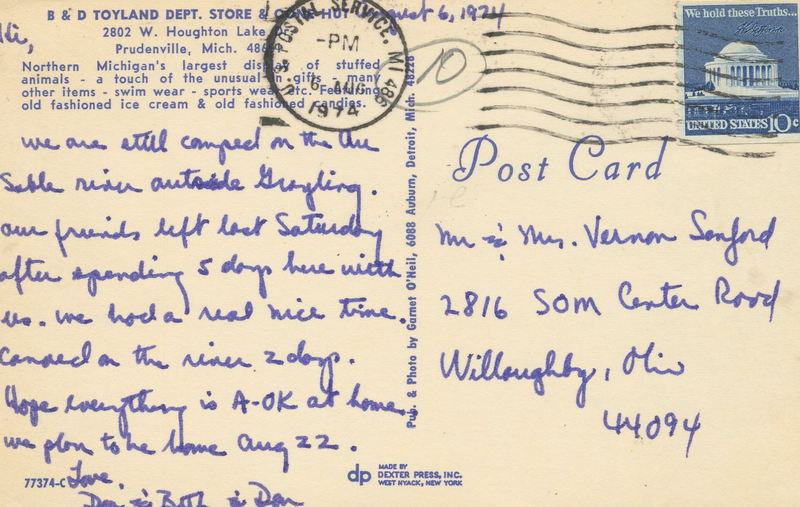 B & D TOYLAND DEPT. STORE &
2802 W. Houghton Lake
Prudenville, Mich.
August 6, 1974
Northern Michigan's largest of stuffed
animals - a touch of the unusual - gifts - many
other items - swim wear - sports wear, etc. Featuring
old fashioned ice cream & old fashioned candies.
Hi,
we are still camped on the Au
Sable river outside Grayling.
our friends left last Saturday
after spending 5 days here with
us. we had a real nice time.
Canoed on the river 2 days.
Hope everything is A-OK at home.
we plan to be home Aug 22.
Love,
Don & Beth & Dan
77374-C
Pub. & Photo by Garnet O'Neil, 6088 Auburn, Detroit, Mich. 48228
U.S. POSTAL SERVICE, MI 486
-PM
6 AUG
1974
10
We hold these Truths...
UNITED STATES 10c
Post Card
Mr & Mrs. Vernon Sanford
2816 SOM Center Road
Willoughby, Ohio
44094
dp MADE BY
DEXTER PRESS, INC.
WEST NYACK, NEW YORK